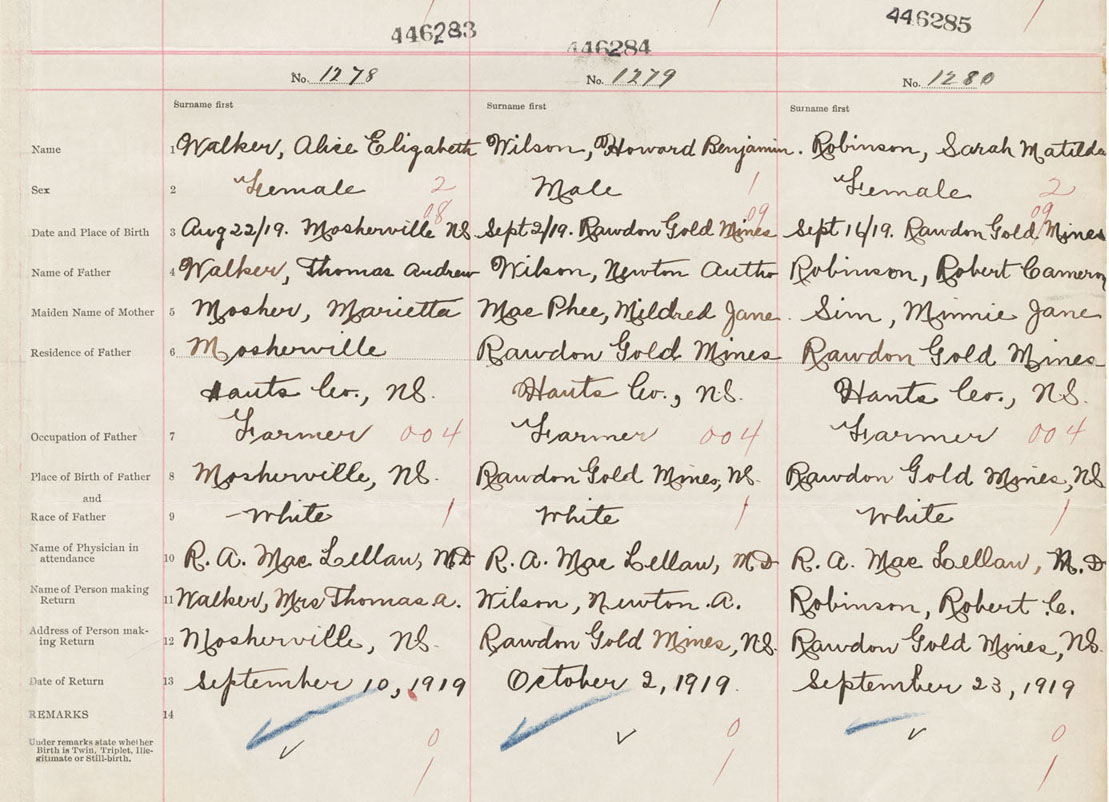 446283 446284 446285
No. 1278 No. 1279 No. 1280
Surname first Surname first Surname first
Name 1 Walker, Alice Elizabeth Wilson, Howard Benjamin. Robinson, Sarah Matilda
Sex 2 Female 2 Male 1 Female 2
08 09 09
Date and Place of Birth 3 Aug 22/19. Mosherville NS Sept 2/19. Rawdon Gold Mines Sept 16/19. Rawdon Gold Mines
Name of Father 4 Walker, Thomas Andrew Wilson, Newton Autho Robinson, Robert Cameron
Maiden Name of Mother 5 Mosher, Marietta Mac Phee, Mildred Jane. Sim, Minnie Jane
Residence of Father 6 Mosherville Rawdon Gold Mines Rawdon Gold Mines
Hants Co., NS. Hants Co., NS. Hants Co., NS.
Occupation of Father 7 Farmer 004 Farmer 004 Farmer 004
Place of Birth of Father 8 Mosherville, NS. Rawdon Gold Mines, NS. Rawdon Gold Mines, NS
and
Race of Father 9 White 1 White 1 White 1
Name of Physician in
attendance 10 R. A. Mac Lellan, MD R. A. Mac Lellan, MD R. A. Mac Lellan, M.D
Name of Person making
Return 11 Walker, Mrs Thomas A. Wilson, Newton A. Robinson, Robert C.
Address of Person mak-
ing Return 12 Mosherville, NS. Rawdon Gold Mines, NS. Rawdon Gold Mines, NS.
Date of Return 13 September 10, 1919 October 2, 1919. September 23, 1919
REMARKS 14
Under remarks state whether
Birth is Twin, Triplet, Ille-
gitimate or Still-birth.
0 0 0
1 1 1